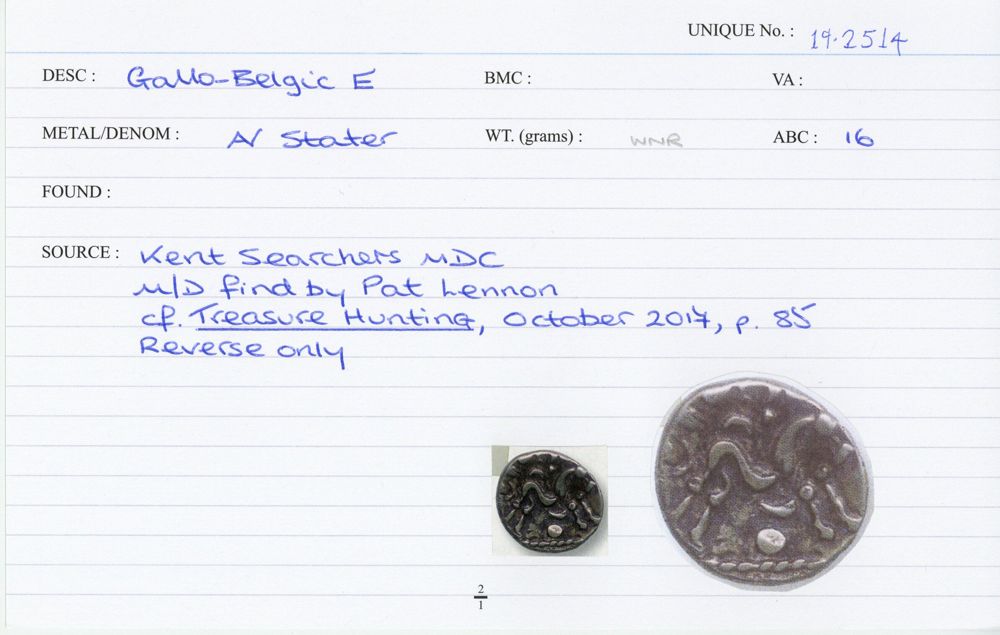 UNIQUE No. : 19.2514
DESC : Gallo-Belgic E BMC : VA :
METAL/DENOM : A/ Stater WT. (grams) : WNR ABC : 16
FOUND :
SOURCE : Kent Searchers MDC
M/D find by Pat Lennon
cf. Treasure Hunting, October 2017, p. 85
Reverse only
2
1